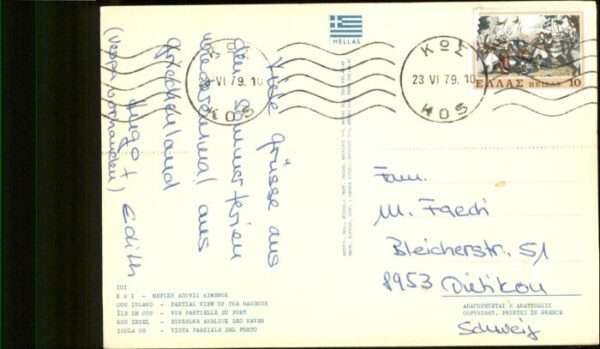 HELLAS
ΚΩΣ
VI 79. 10
KOS
ΚΩΣ
23 VI 79. 10
KOS
ΕΛΛΑΣ HELLAS 10
Viele Grüsse aus
den Sommerferien
wiedereinmal aus
Griechenland
Hugo + Edith
(Vespa vorhanden)
Fam.
M. Faech
Bleicherstr. 51
8953 Dietikon
Schweiz
101
ΑΠΑΓΟΡΕΥΕΤΑΙ Η ΑΝΑΤΥΠΩΣΙΣ
COPYRIGHT, PRINTED IN GREECE
COS ISLAND - PARTIAL VIEW OF THE HARBOUR
ÎLE DE COS - VUE PARTIELLE DU PORT
KOS INSEL - TEILWEISE DES HAFEN
ISOLA DI - VISTA PARZIALE DEL PORTO